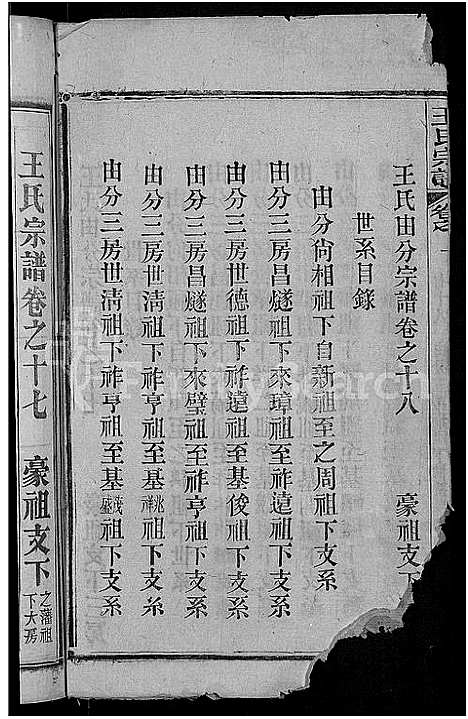 王氏宗譜
王氏由分宗譜卷之十八 豪祖支下
世系目錄
由分尙相祖下自新祖至之周祖下支系
由分三房昌燧祖下來璋祖至祚遠祖下支系
由分三房世德祖下祚遠祖至基俊祖下支系
由分三房昌燧祖下來璧祖至祚亨祖下支系
由分三房世淸祖下祚亨祖至基兆祥祖下支系
由分三房世淸祖下祚亨祖至基茂盛祖下支系
王氏宗譜卷之十七 豪祖支下之藩祖下大房
FamilySearch